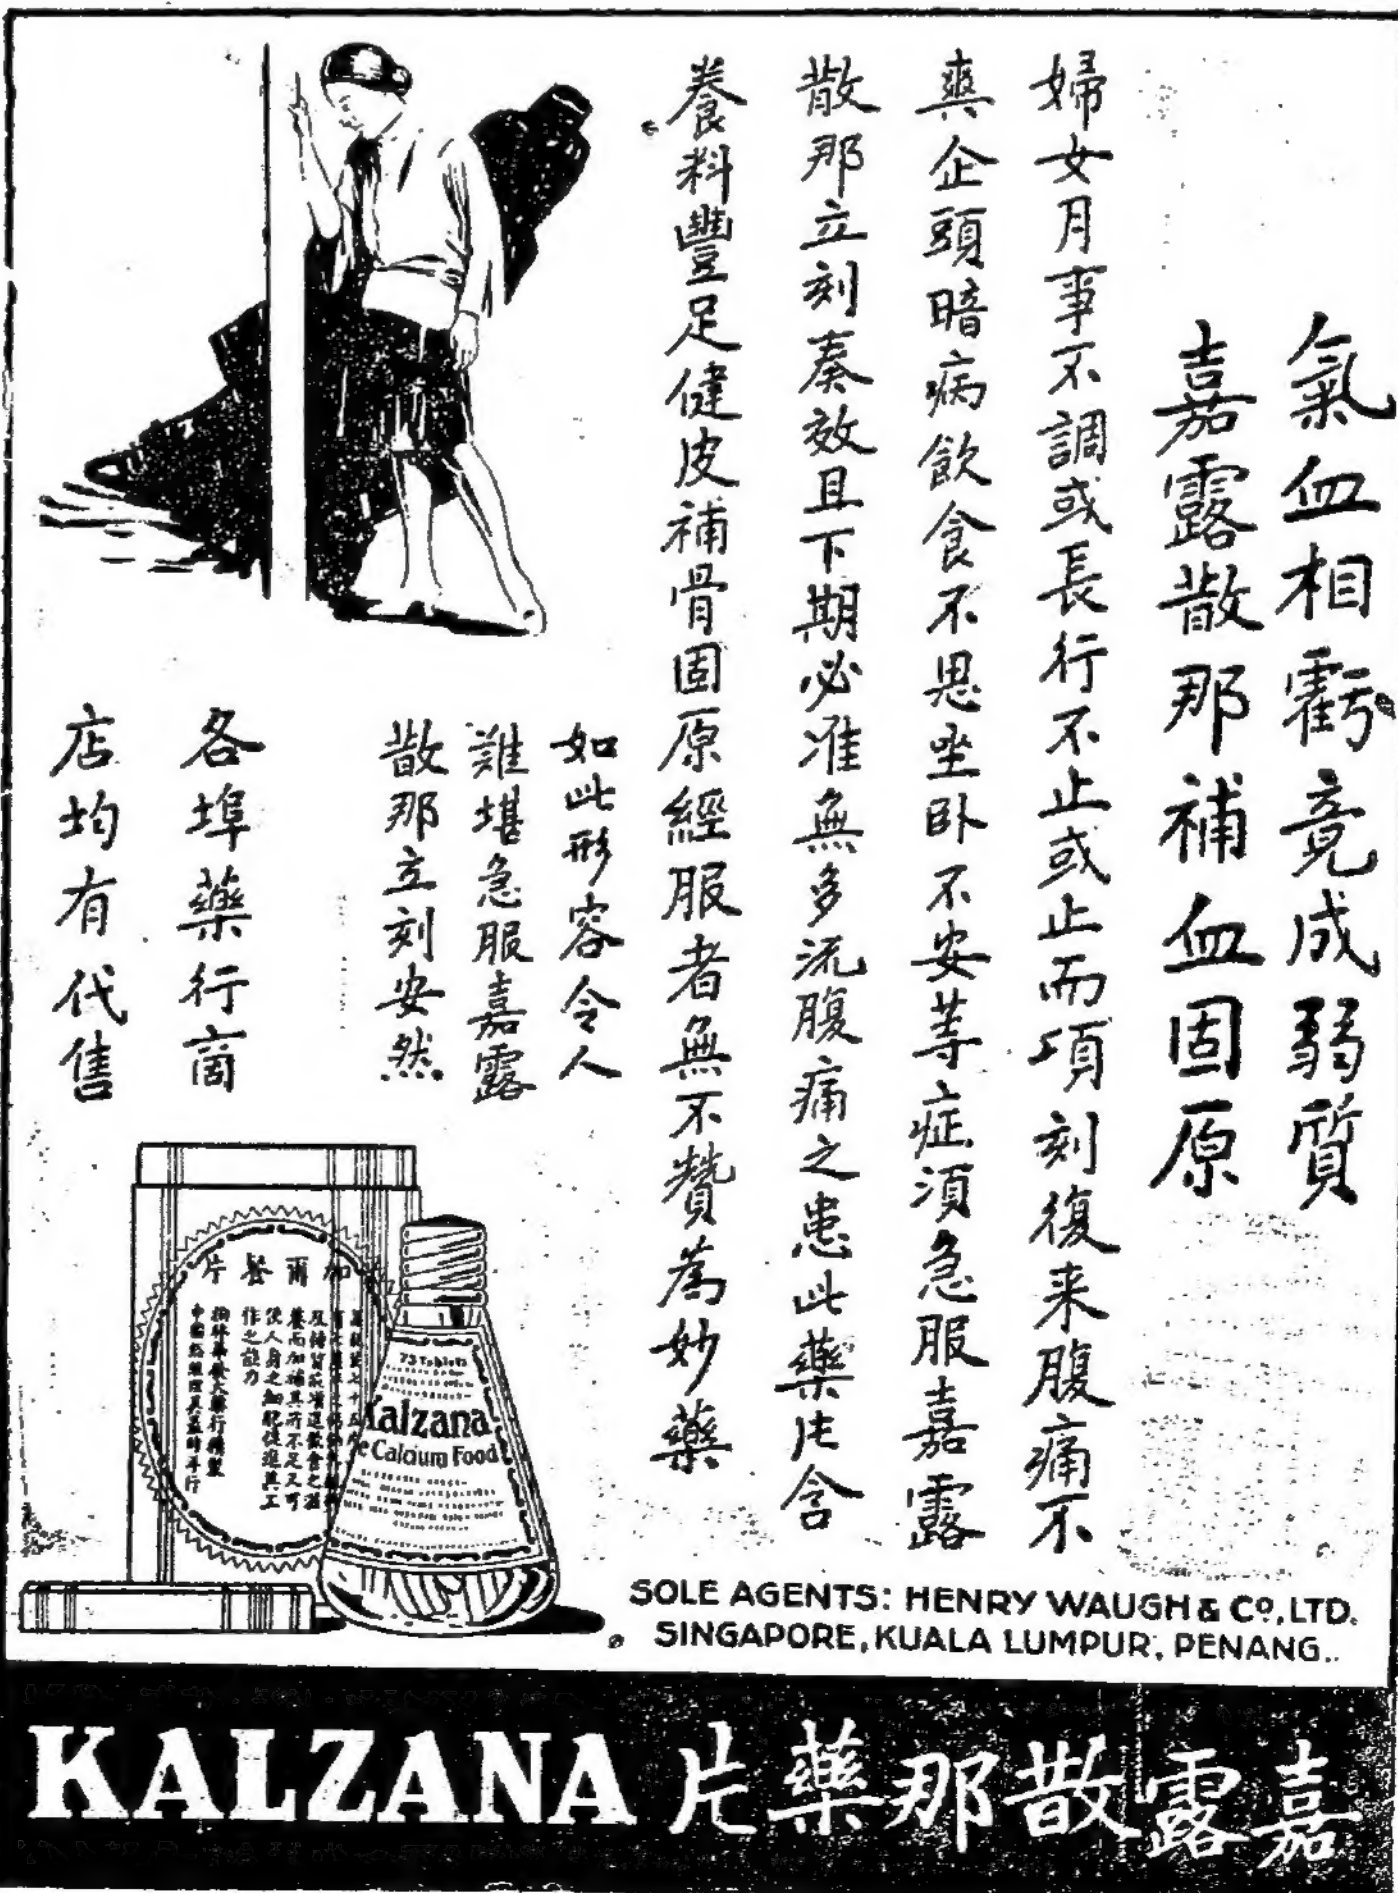 氣血相虧竟成弱質
嘉露散那補血固原
婦女月事不調或長行不止或止而項刻復来腹痛不
爽企頭暗病飲食不思坐卧不安等症須急服嘉露
散那立刻奏效且下期必准無多流腹痛之患此藥片含
養料豐足健皮補骨固原經服者無不贊為妙藥
如此形容令人
難堪急服嘉露
散那立刻安然
各埠藥行商
店均有代售
加爾餐片
養而加補其所不足又可
使人身之細胞促進其工
作之能力
75 Tablets
Kalzana
Calcium Food
SOLE AGENTS: HENRY WAUGH & CO., LTD.
SINGAPORE, KUALA LUMPUR, PENANG..
KALZANA 片藥那散露嘉